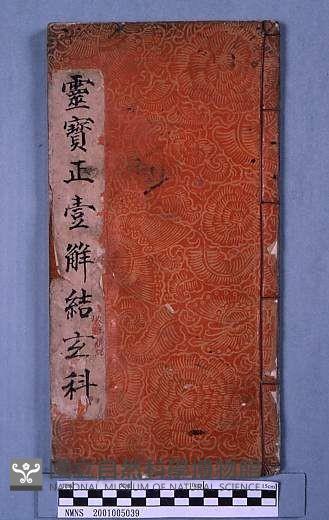 靈寶正壹觧結玄科
國立自然科學博物館
NATIONAL MUSEUM OF NATURAL SCIENCE
NMNS 2001005039